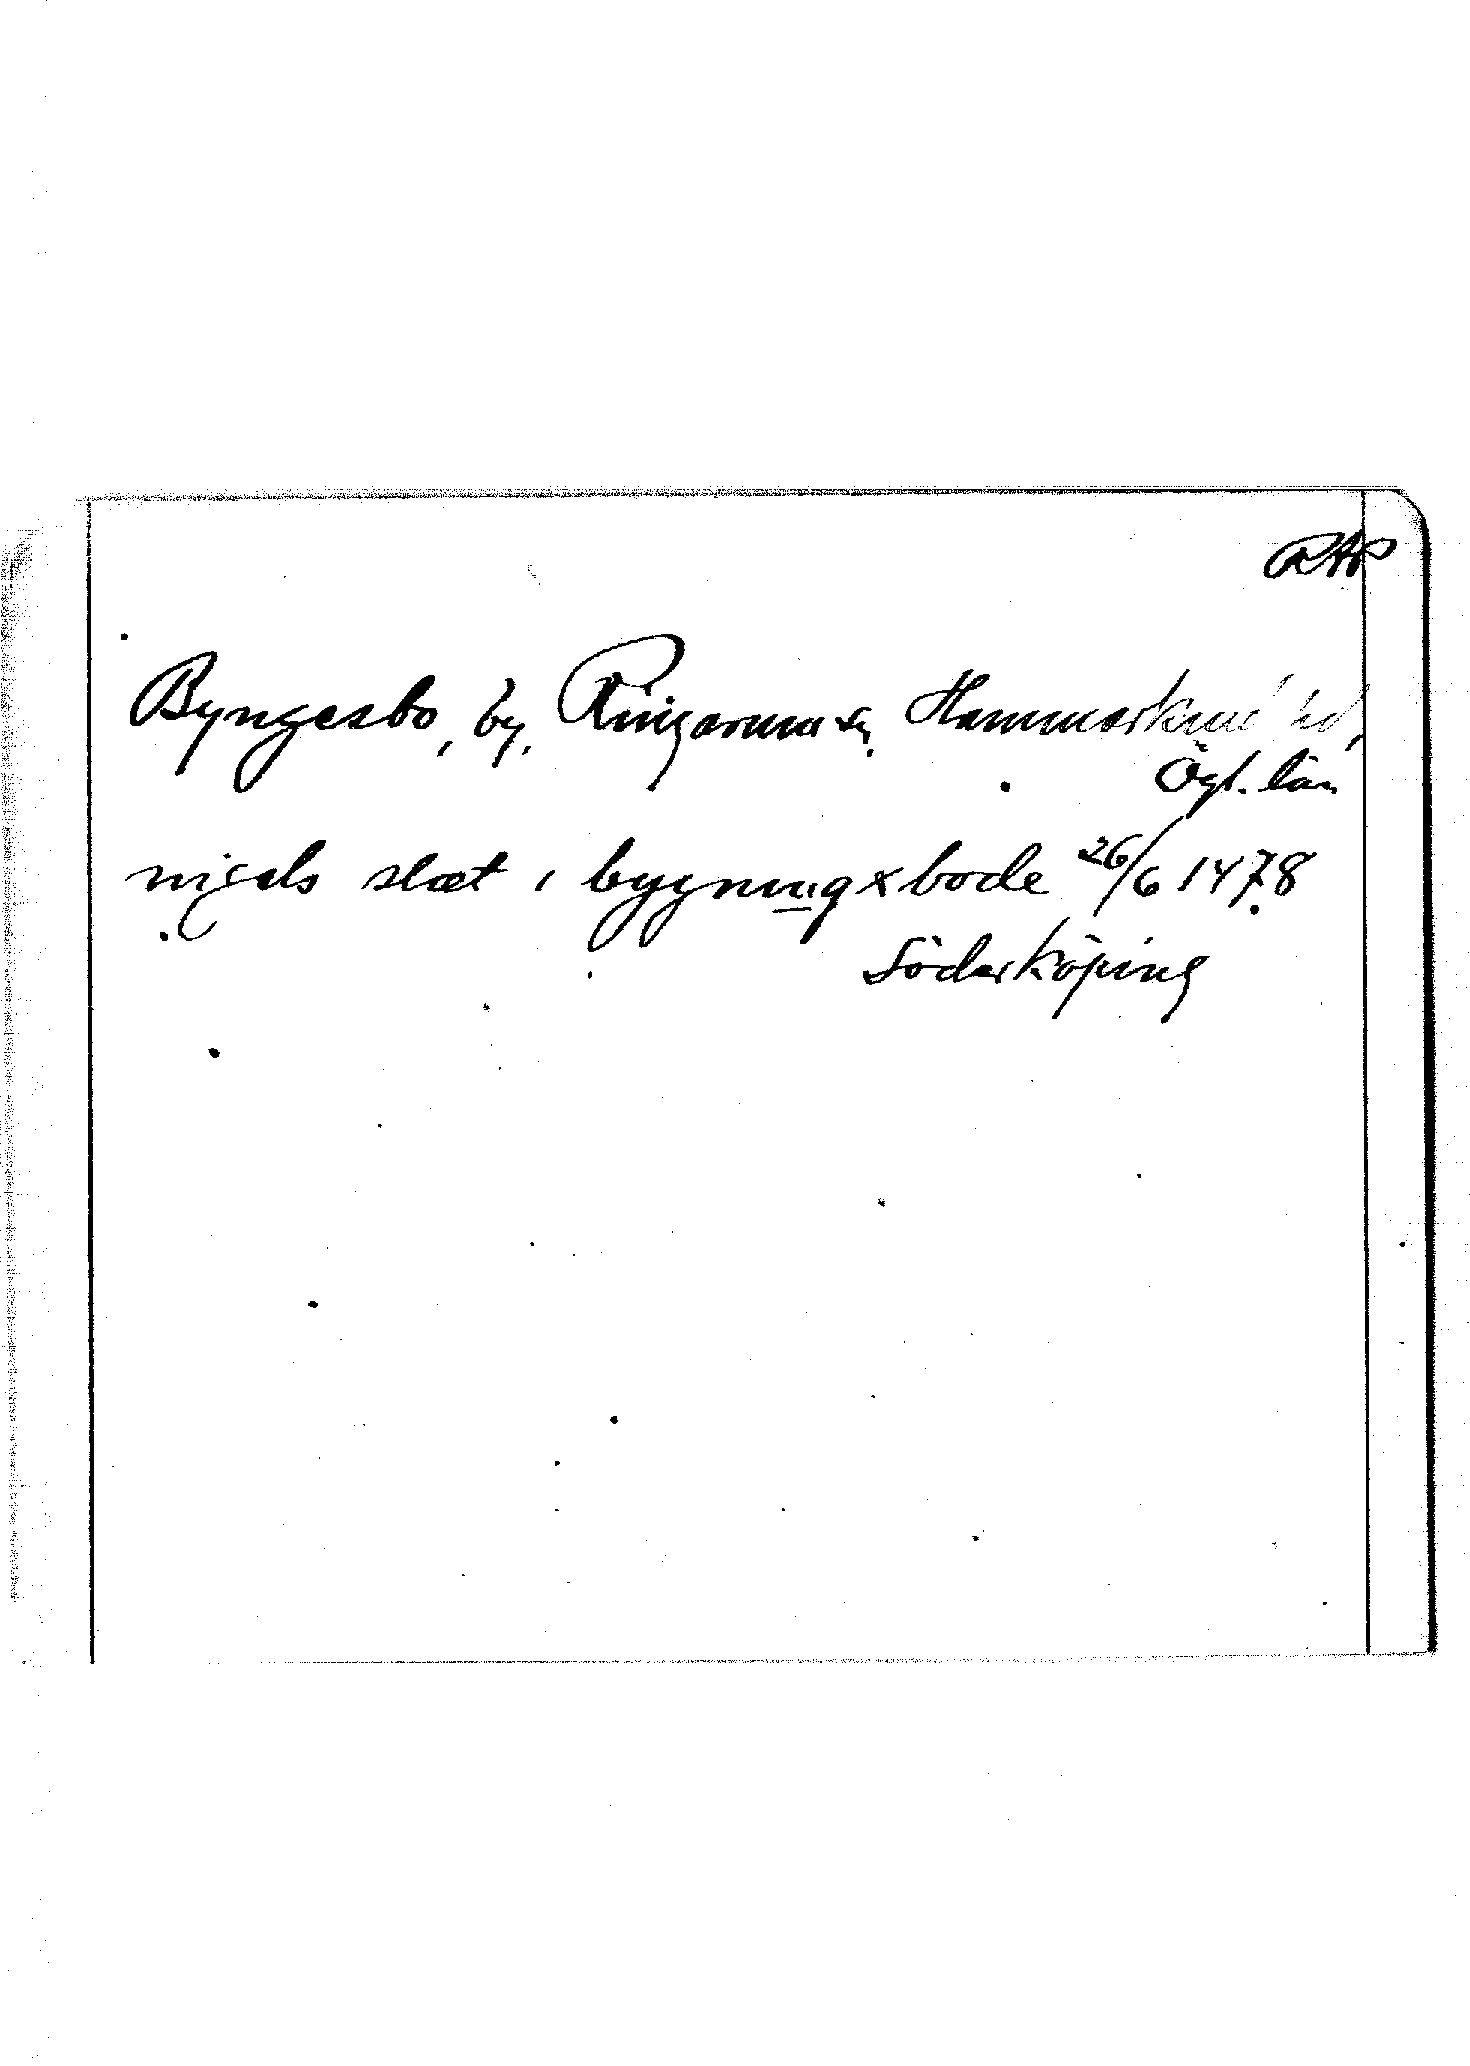 RAP
Byngesbo, by, Ringarums sn, Hammarkinds hd,
Ögl. län
nigels slæt i bygningxbode 26/6 1478
Söderköping